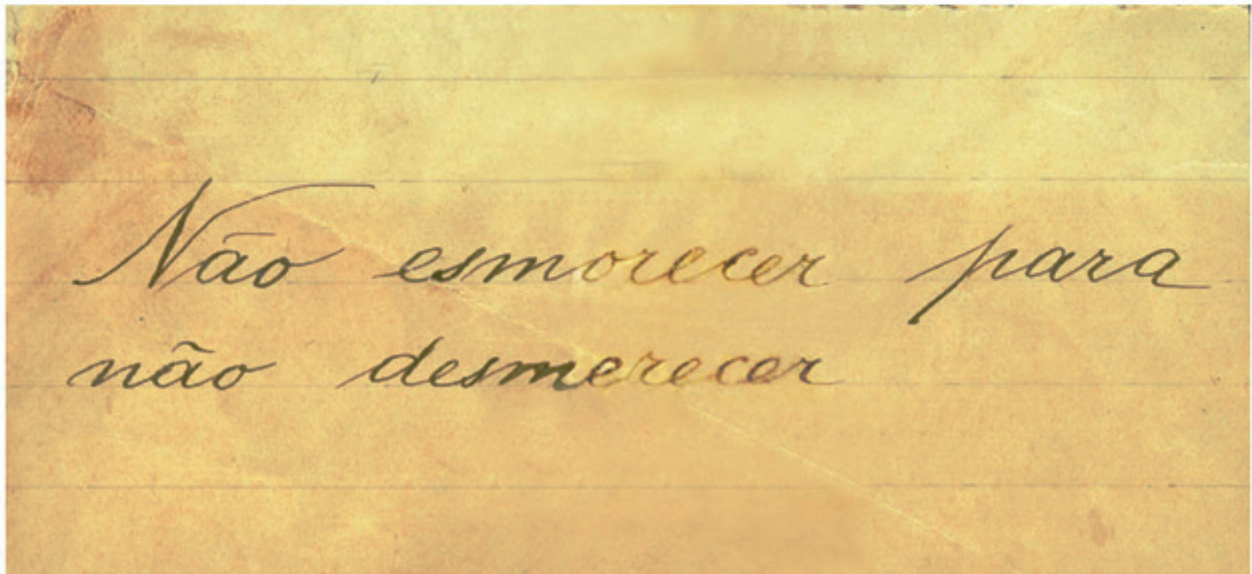 Não esmorecer para
não desmerecer